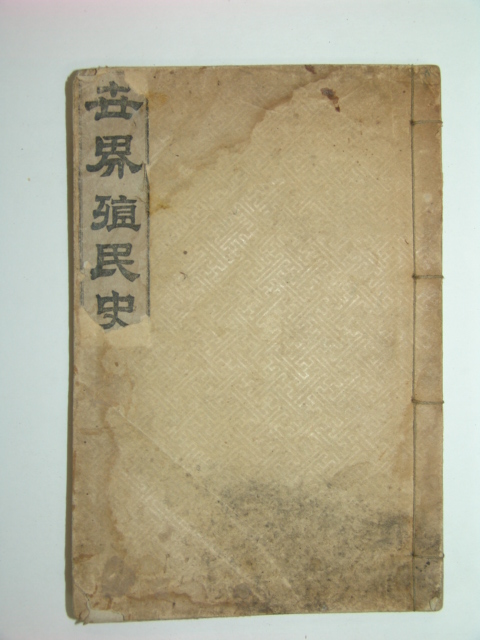 世界殖民史